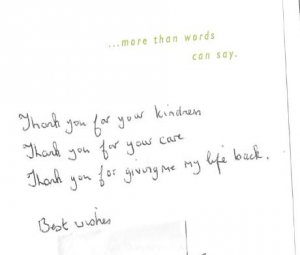 ...more than words
can say.
Thank you for your kindness
Thank you for your care
Thank you for giving me my life back.
Best wishes